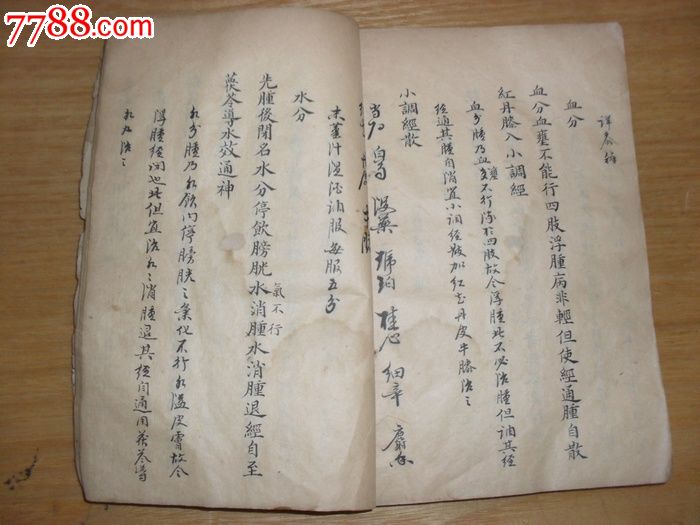 7788.com
血分
血分血壅不能行四肢浮腫病非輕但使經通腫自散
紅丹膝入小調經
血分腫乃血壅不行流於四肢故令浮腫此不必治腫但調其經
經通其腫自消宜小調經散加紅花丹皮牛膝治之
小調經散
當歸 赤芍 沒藥 琥珀 桂心 細辛 麝香
末薑汁溫酒調服每服五分
水分
先腫後閉名水分停飲膀胱氣不行水消腫水消腫退經自至
茯苓導水效通神
水分腫乃水飲內停膀胱之氣化不行水溢皮膚故令
浮腫經閉也此但宜治水水消腫退其經自通用茯苓導
水丸治之